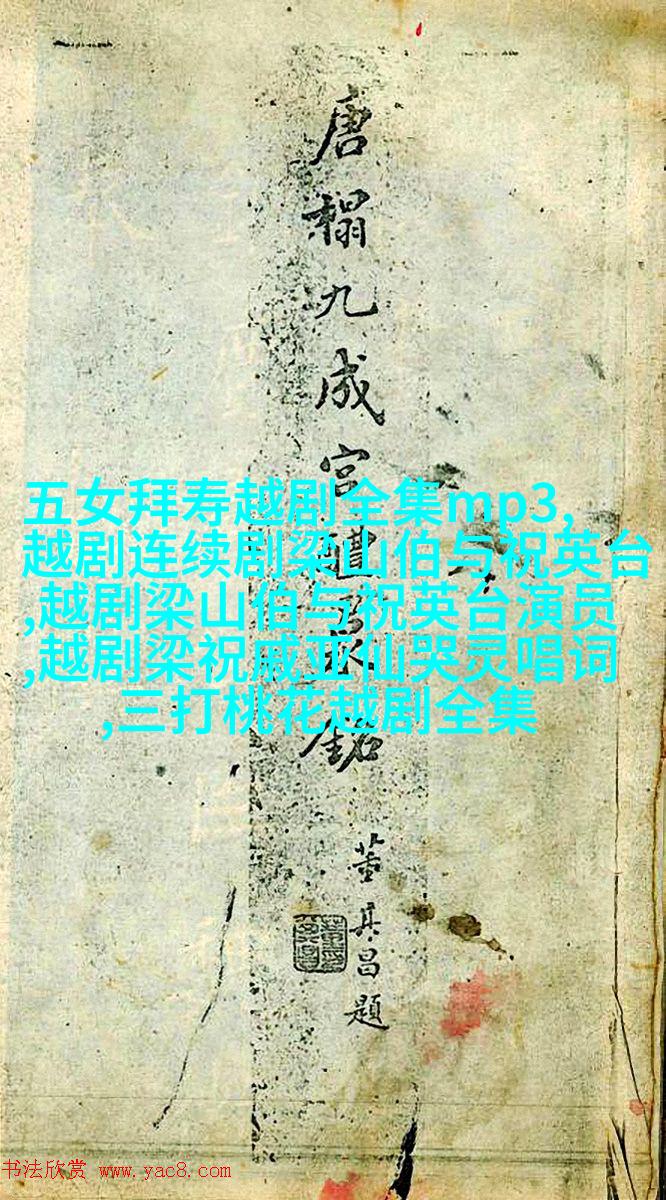 唐榻九成宮醴泉銘
董其昌題
五女拜寿越剧全集mp3,
越剧连续剧梁山伯与祝英台
,越剧梁山伯与祝英台演员
,越剧梁祝戚亚仙哭灵唱词
,三打桃花越剧全集
书法欣赏 www.yac8.com